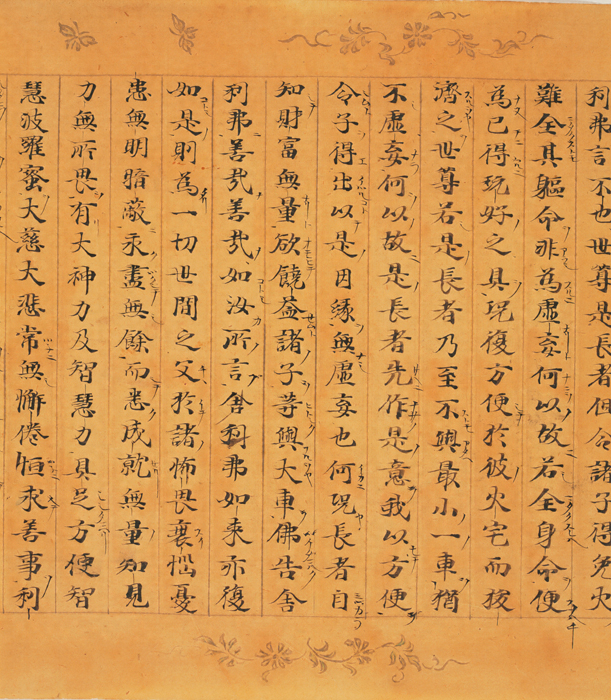 利弗言不也世尊是長者但令諸子得免火
難全其軀命非為虛妄何以故若全身命便
為已得玩好之具況復方便於彼火宅而拔
濟之世尊若是長者乃至不與最小一車猶
不虛妄何以故是長者先作是意我以方便
令子得出以是因緣無虛妄也何況長者自
知財富無量欲饒益諸子等與大車佛告舍
利弗善哉善哉如汝所言舍利弗如來亦復
如是則為一切世間之父於諸怖畏衰惱憂
患無明暗蔽永盡無餘而悉成就無量知見
力無所畏有大神力及智慧力具足方便智
慧波羅蜜大慈大悲常無懈惓恒求善事利